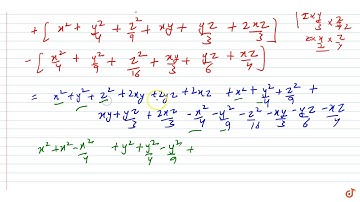 +[x² + y²/4 + z²/9 + xy + yz/3 + 2xz/3]
2xy/3 × z/2
-[x²/4 + y²/9 + z²/16 + xy/3 + yz/6 + xz/4]
= x² + y² + z² + 2xy + 2yz + 2xz + x² + y²/4 + z²/9 +
xy + yz/3 + 2xz/3 - x²/4 - y²/9 - z²/16 - xy/3 - yz/6 - xz/4
x² + x² - x²/4 + y² + y²/4 - y²/9 +